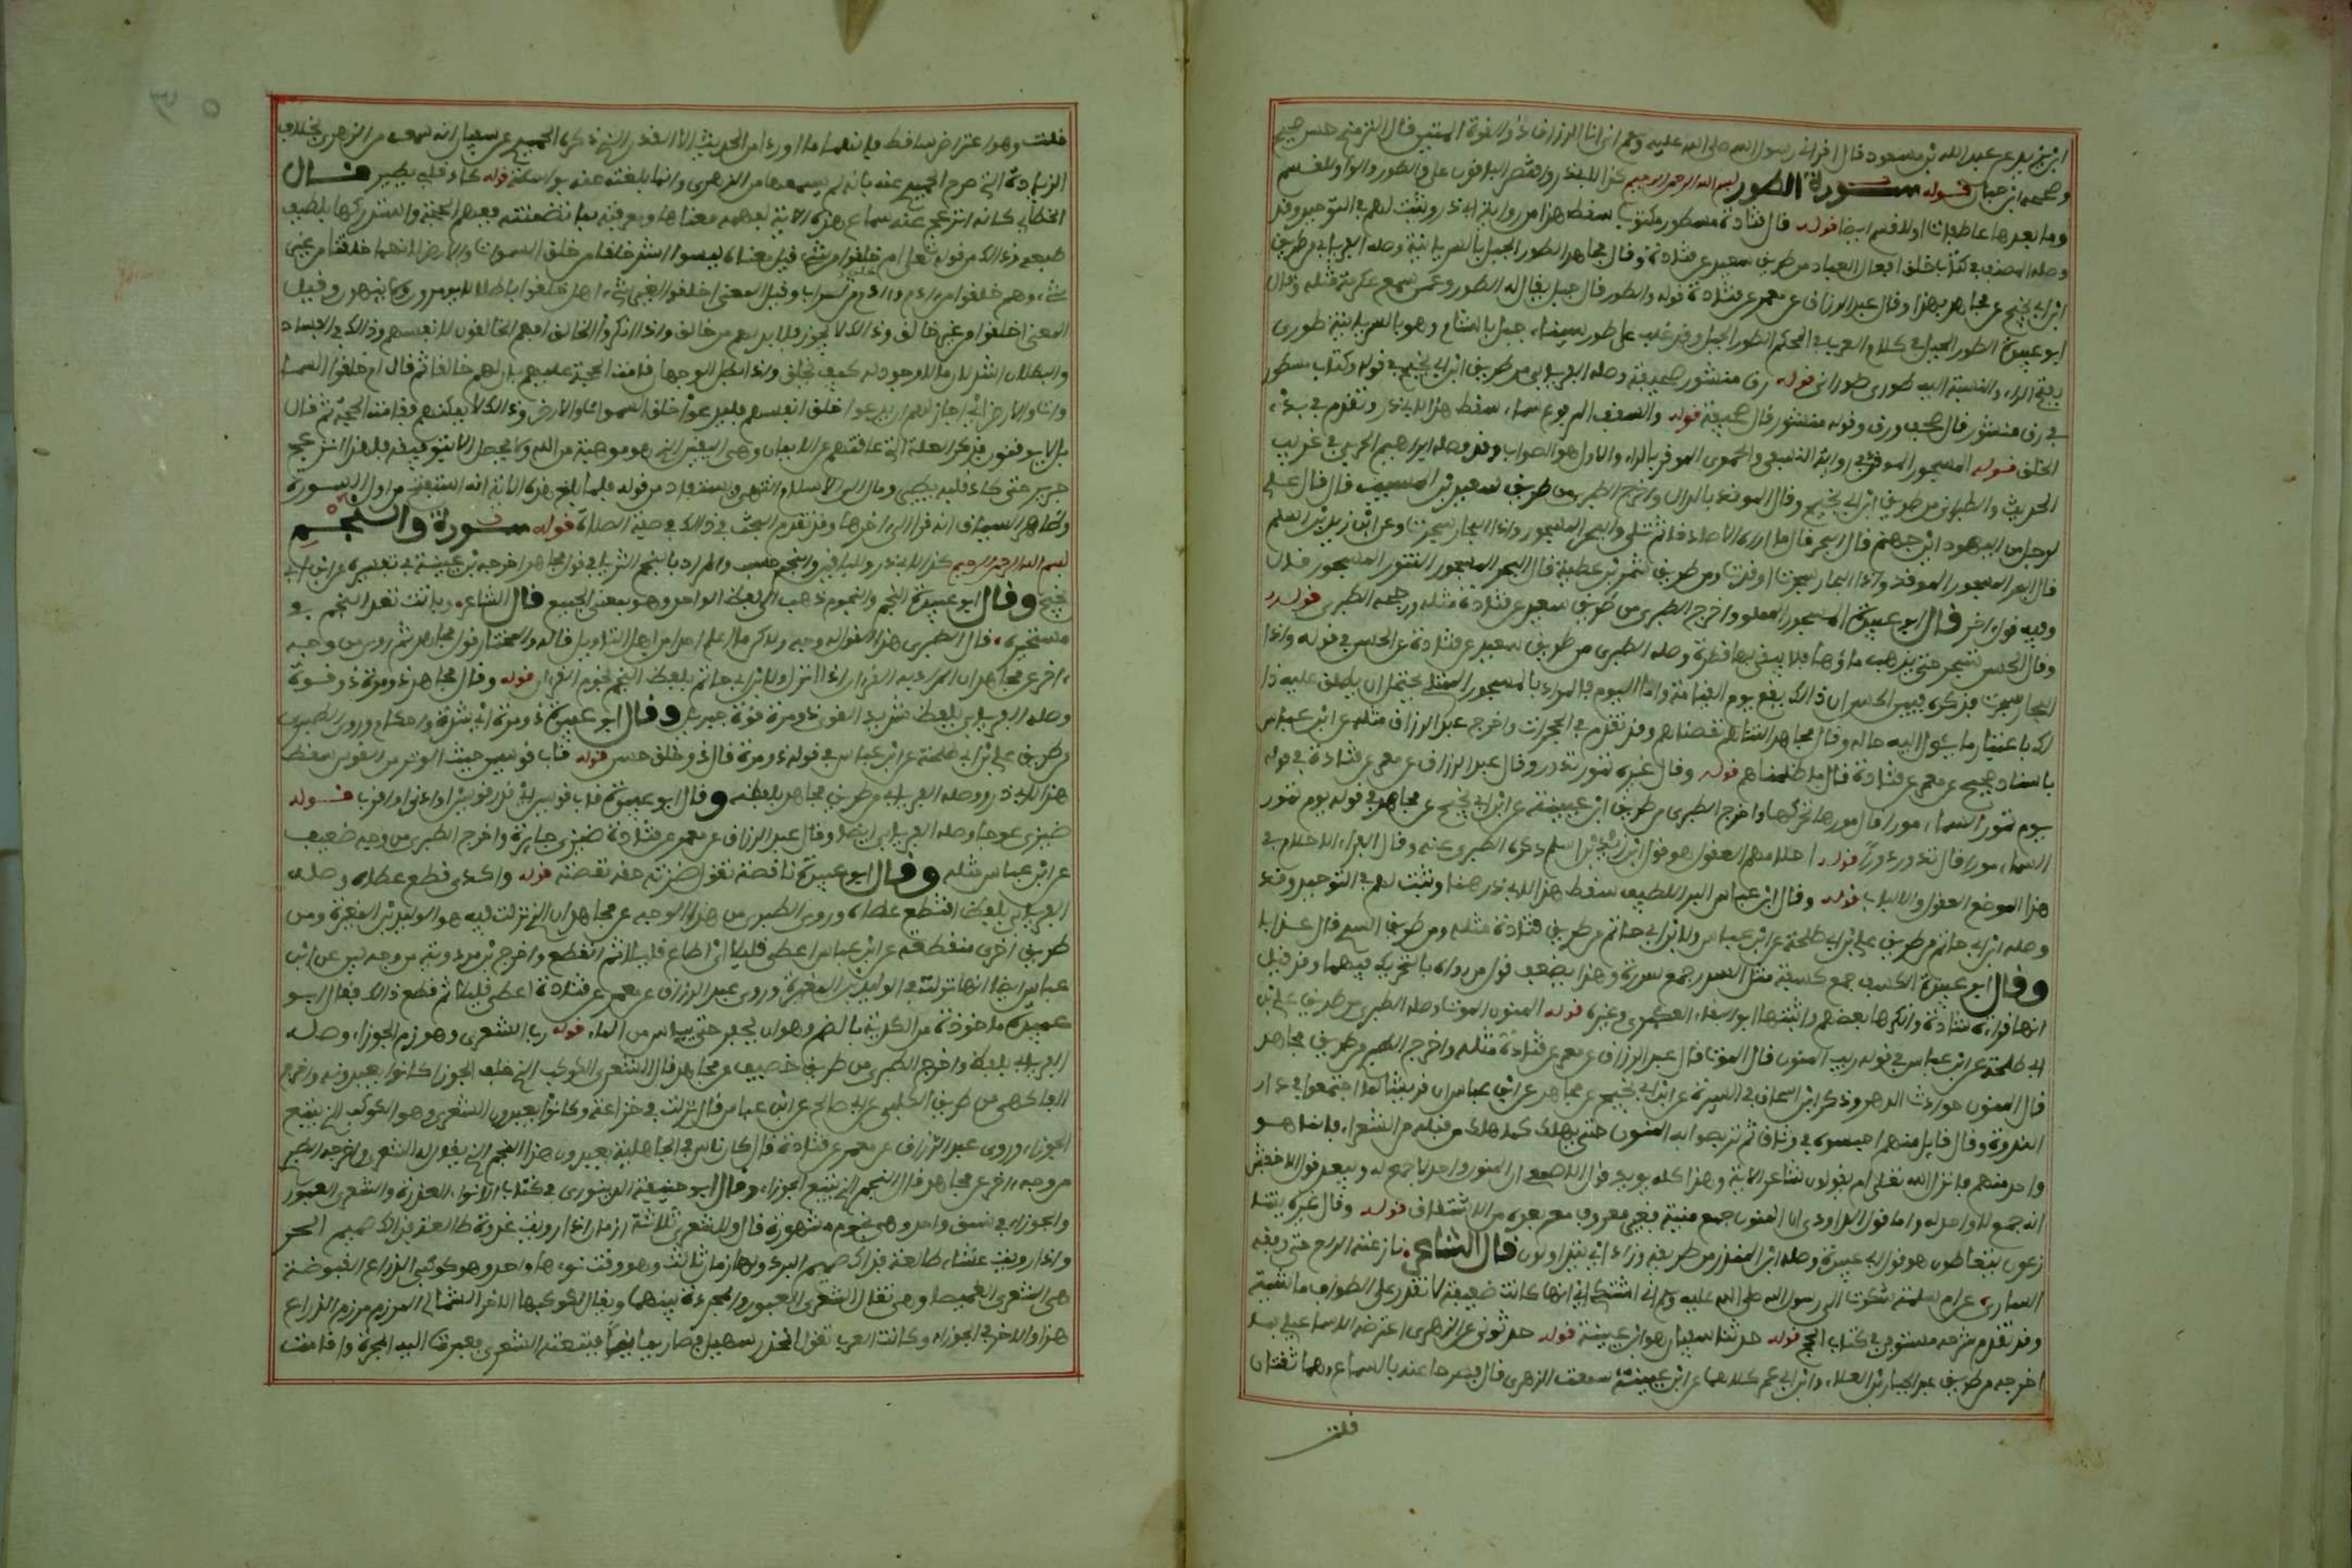 ابن يزيد عن عبد الله بن مسعود قال اقراني رسول الله صلى الله عليه وسلم اني انا الرزاق ذو القوة المتين قال الترمذي حسن صحيح
وصححه ابن حبان قوله سورة الطور بسم الله الرحمن الرحيم كذا لابي ذر واقتصر الباقون على والطور والواو للقسم
وما بعدها عاطفات او للقسم ايضا قوله وقال قتادة مسطور مكتوب سقط هذا من رواية ابي ذر وثبت لهم في التوحيد وقد
وصله المصنف في كتاب خلق افعال العباد من طريق سعيد عن قتادة وقال مجاهد الطور الجبل بالسريانية وصله الفريابي من طريق
ابن ابي نجيح عن مجاهد بهذا وقال عبد الرزاق عن معمر عن قتادة قوله والطور قال جبل يقال له الطور وعمن سمع عكرمة مثله وقال
ابو عبيدة الطور الجبل في كلام العرب في المحكم الطور الجبل وقد غلب على طور سيناء جبل بالشام وهو بالسريانية طورى
بفتح الراء والنسبة اليه طورى وطورانى قوله رق منشور صحيفة وصله الفريابي من طريق ابن ابي نجيح في قوله وكتاب مسطور
في رق منشور قال صحف ورق وقوله منشور قال صحيفة قوله والسقف المرفوع سماء سقط هذا لابي ذر وتقدم في بدء
الخلق قوله المسجور الموقد في رواية النسفي والحموى الموقر بالراء والاول هو الصواب وقد وصله ابراهيم الحربي في غريب
الحديث والطبرانى من طريق ابن ابي نجيح وقال الموقد بالدال واخرج الطبرى من طريق سعيد بن المسيب قال قال على
لرجل من اليهود اين جهنم قال البحر قال ما اراه الا صادقا ثم تلى والبحر المسجور واذا البحار سجرت وعن ابن زيد بن اسلم
قال البحر المسجور الموقد واذا البحار سجرت اوقدت ومن طريق شمر بن عطية قال البحر المسجور التنور المسجور قال
وفيه قول اخر قال ابو عبيدة المسجور المملوء واخرج الطبرى من طريق سعيد عن قتادة مثله ورجحه الطبرى قوله
وقال الحسن تسجر حتى يذهب ماؤها فلا يبقى بها قطرة وصله الطبرى من طريق سعيد عن قتادة عن الحسن في قوله واذا
البحار سجرت فذكره فبين الحسن ان ذلك يقع يوم القيامة واما اليوم فالمراد بالمسجور الممتلئ يحتمل ان يطلق عليه ذا
لك باعتبار ما يئول اليه حاله وقال مجاهد التناهم نقصناهم وقد تقدم في الحجرات واخرج عبد الرزاق مثله عن ابن عباس
باسناد صحيح عن معمر عن قتادة قال ما ظلمناهم قوله وقال غيره تمور تدور وقال عبد الرزاق عن معمر عن قتادة في قوله
يوم تمور السماء مورا قال مورها تحركها واخرج الطبرى من طريق ابن عيينة عن ابن ابي نجيح عن مجاهد في قوله يوم تمور
السماء مورا قال تدور دورا قوله احلامهم العقول هو قول ابن زيد بن اسلم ذكره الطبرى عنه وقال الفراء الاحلام في
هذا الموضع العقول والالباب قوله وقال ابن عباس البر اللطيف سقط هذا لابي ذر هنا وثبت لهم في التوحيد وقد
وصله ابن ابي حاتم من طريق علي بن ابي طلحة عن ابن عباس ولابن ابي حاتم من طريق قتادة مثله ومن طريق السدى قال عذابا
وقال ابو عبيدة الكسف جمع كسفة مثل السدر جمع سدرة وهذا يضعف قول من رواه بالتحريك فيهما وقد قيل
انها قراءة شاذة وانكرها بعضهم واثبتها ابو البقاء العكبرى وغيره قوله المنون الموت وصله الطبرى من طريق علي بن
ابي طلحة عن ابن عباس في قوله ريب المنون قال الموت وقال عبد الرزاق عن معمر عن قتادة مثله واخرج الطبرى من طريق مجاهد
قال المنون حوادث الدهر وذكر ابن اسحاق في السيرة عن ابن ابي نجيح عن مجاهد عن ابن عباس ان قريشا لما اجتمعوا في دار
الندوة وقال قايل منهم احبسوه في وثاق ثم تربصوا به المنون حتى يهلك كما هلك من قبله من الشعراء فانما هو
واحد منهم فانزل الله تعلى ام يقولون شاعر الاية وهذا كله يويد قول الاصمعي ان المنون واحد لا جمع له ويبعد قول الاخفش
انه جمع لا واحد له واما قول الداودى ان المنون جمع منية فغير معروف مع بعده من الاشتقاق قوله وقال غيره يتنا
زعون يتعاطون هو قول ابي عبيدة وصله ابن المنذر من طريقه وزاد اي يتداولون قال الشاعر نازعته الراح حتى وقفه
السارى عن ام سلمة شكوت الى رسول الله صلى الله عليه وسلم اني اشتكي اي انها كانت ضعيفة لا تقدر على الطواف ماشية
وقد تقدم شرحه مستوفى في كتاب الحج قوله حدثنا سفيان هو ابن عيينة قوله حدثونى عن الزهرى اعترضه الاسماعيلي بما
اخرجه من طريق عبد الجبار بن العلاء وابن ابي عمر كلاهما عن ابن عيينة سمعت الزهرى قال فصرحا عنه بالسماع وهما ثقتان
قلت
قلت وهو اعتراض ساقط فانهما ما اوردا من الحديث الا القدر الذي ذكره الحميدي عن سفيان انه سمعه من الزهرى بخلاف
الزيادة التي صرح الحميدي عنه بانه لم يسمعها من الزهرى وانما بلغته عنه بواسطة قوله كاد قلبي يطير قال
الخطابي كانه انزعج عند سماع هذه الاية لفهمه معناها ومعرفته بما تضمنته ففهم الحجة واستدركها بلطيف
طبعه وذلك من قوله تعلى ام خلقوا من غير شيء قيل معناه ليسوا اشد خلقا من خلق السموات والارض لانهما خلقتا من غير
شيء وهم خلقوا من ادم وادم من تراب وقيل المعنى اخلقوا لغير شيء اي خلقوا باطلا لا يومرون ولا ينهون وقيل
المعنى اخلقوا من غير خالق وذلك لا يجوز فلا بد لهم من خالق واذا انكروا الخالق فهم الخالقون لانفسهم وذلك في الفساد
والبطلان اشد لان ما لا وجود له كيف يخلق واذا بطل الوجهان قامت الحجة عليهم بان لهم خالقا ثم قال ام خلقوا السما
وات والارض اي ان جاز لهم ان يدعوا خلق انفسهم فليدعوا خلق السموات والارض وذلك لا يمكنهم فقامت الحجة ثم قال
بل لا يوقنون فذكر العلة التي عاقتهم عن الايمان وهى اليقين الذي هو موهبة من الله ولا يحصل الا بتوفيقه فلهذا انزعج
جبير حتى كاد قلبه يطير ومال الى الاسلام انتهى ويستفاد من قوله فلما بلغ هذه الاية انه استفتح من اول السورة
وظاهر السياق انه قرا الى اخرها وقد تقدم البحث في ذلك في صفة الصلاة قوله سورة والنجم
بسم الله الرحمن الرحيم كذا لابي ذر وللباقين والنجم حسب والمراد بالنجم الثريا في قول مجاهد اخرجه ابن عيينة في تفسيره عن ابن ابي
نجيح وقال ابو عبيدة النجم والنجوم ذهب الى لفظ الواحد وهو بمعنى الجميع قال الشاعر وباتت تعد النجم في
مستحيرة قال الطبرى هذا القول له وجه ولكن ما اعلم احدا من اهل التاويل قاله والمختار قول مجاهد ثم روى من وجه
اخر عن مجاهد ان المراد به القرءان اذا انزل ولابن ابي حاتم بلفظ النجم نجوم القرءان قوله وقال مجاهد ذو مرة ذو قوة
وصله الفريابي بلفظ شديد القوى ذو مرة قوة جبريل وقال ابو عبيدة ذو مرة اي شدة واحكام وروى الطبرى
من طريق علي بن ابي طلحة عن ابن عباس في قوله ذو مرة قال ذو خلق حسن قوله قاب قوسين حيث الوتر من القوس سقط
هذا لابي ذر ووصله الفريابي من طريق مجاهد بلفظه وقال ابو عبيدة قاب قوسين اي قدر قوسين او ادنى او اقرب قوله
ضيزى عوجاء وصله الفريابي ايضا وقال عبد الرزاق عن معمر عن قتادة ضيزى جايرة واخرج الطبرى من وجه ضعيف
عن ابن عباس مثله وقال ابو عبيدة ناقصة تقول ضزته حقه نقصته قوله واكدى قطع عطاه وصله
الفريابي بلفظ اقتطع عطاه وروى الطبرى من هذا الوجه عن مجاهد ان الذي نزلت فيه هو الوليد بن المغيرة ومن
طريق اخرى منقطعة عن ابن عباس اعطى قليلا اي اطاع قليلا ثم انقطع واخرج ابن مردويه من وجه لين عن ابن
عباس ايضا انها نزلت في الوليد بن المغيرة وروى عبد الرزاق عن معمر عن قتادة اعطى قليلا ثم قطع ذلك وقال ابو
عبيدة ماخوذة من الكدية بالضم وهو ان يحفر حتى ييئس من الماء قوله رب الشعرى وهو مرزم الجوزاء وصله
الفريابي بلفظه واخرج الطبرى من طريق خصيف عن مجاهد قال الشعرى الكوكب الذي خلف الجوزا كانوا يعبدونه واخرج
الفاكهى من طريق الكلبى عن ابي صالح عن ابن عباس قال نزلت في خزاعة وكانوا يعبدون الشعرى وهو الكوكب الذي يتبع
الجوزاء وروى عبد الرزاق عن معمر عن قتادة قال كان ناس في الجاهلية يعبدون هذا النجم الذي يقال له الشعرى واخرجه الطبرى
من وجه اخر عن مجاهد قال النجم الذي يتبع الجوزاء وقال ابو حنيفة الدينورى في كتاب الانواء العذرة والشعرى العبور
والجوزاء في نسق واحد وهى نجوم مشهورة قال وللشعرى ثلاثة ازمان اذا رويت غدوة طالعة فذاك صميم الحر
واذا رويت عشاء طالعة فذاك صميم البرد ولها زمان ثالث وهو وقت نوءها واحد وهو كوكبي الذراع المقبوضة
هى الشعرى الغميصا وهى تقابل الشعرى العبور والمجرة بينهما ويقال لكوكبها الاخر الشمالي المرزم مرزم الذراع
هذا والاخر في الجوزاء وكانت العرب تقول انحدر سهيل فصار يمانيا فتبعته الشعرى فعبرت اليه المجرة واقامت